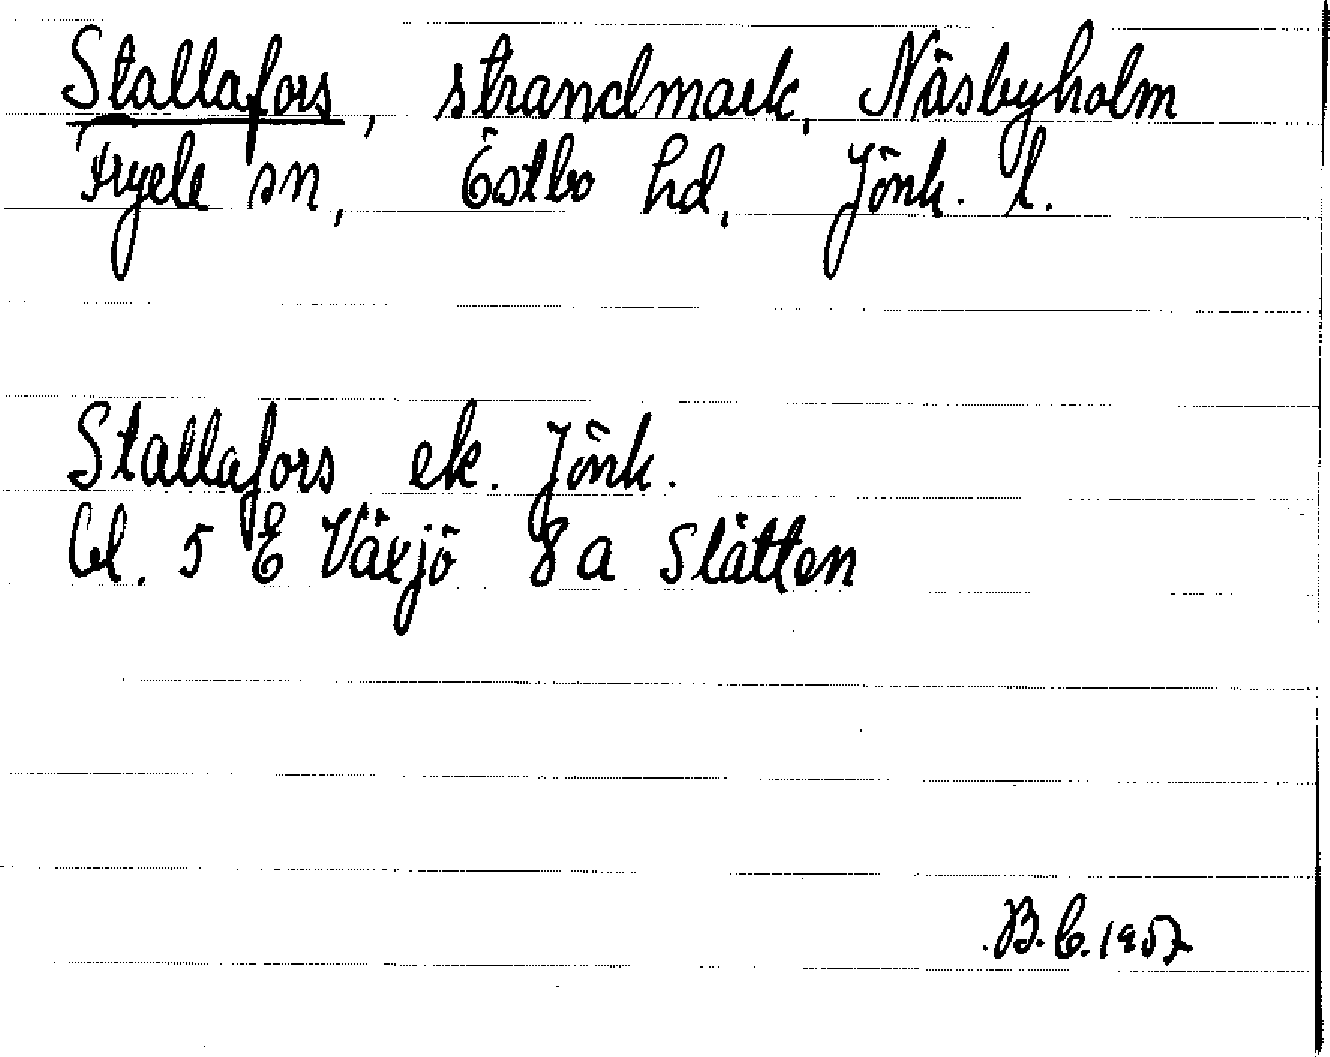 Stallafors, strandmark, Näsbyholm
Fryele sn, Östbo hd, Jönk. l.
Stallafors ek. Jönk.
bl. 5 E Växjö 8 a Slätten
B.C. 1957